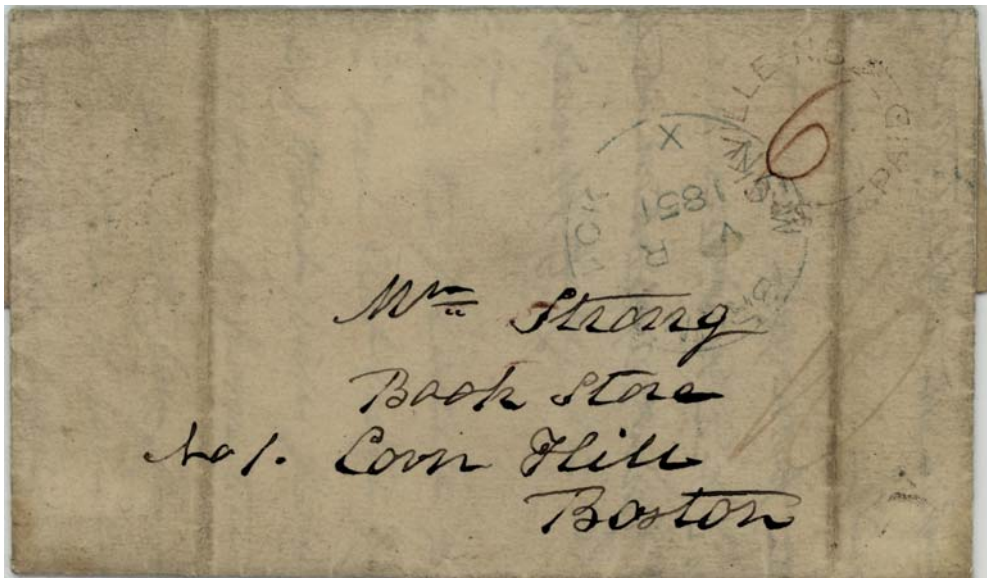 6
PAID
1851
Wm Strong
Book Store
No 1. Corn Hill
Boston